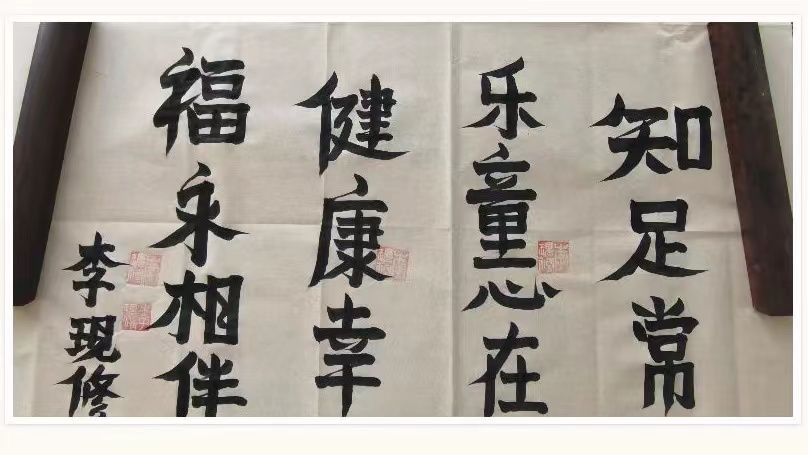 知足常
乐童心在
健康幸
福永相伴
李现修